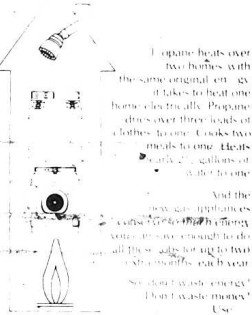 Propane heats over
two homes with
the same original energy
it takes to heat one
home electrically. Propane
dries over three loads of
clothes to one. Cooks two
meals to one. Heats
nearly gallons of
water to one.
And the
new gas appliances
conserve so much energy
you can save enough to do
all these jobs for up to two
extra months each year.
So don't waste energy!
Don't waste money!
Use